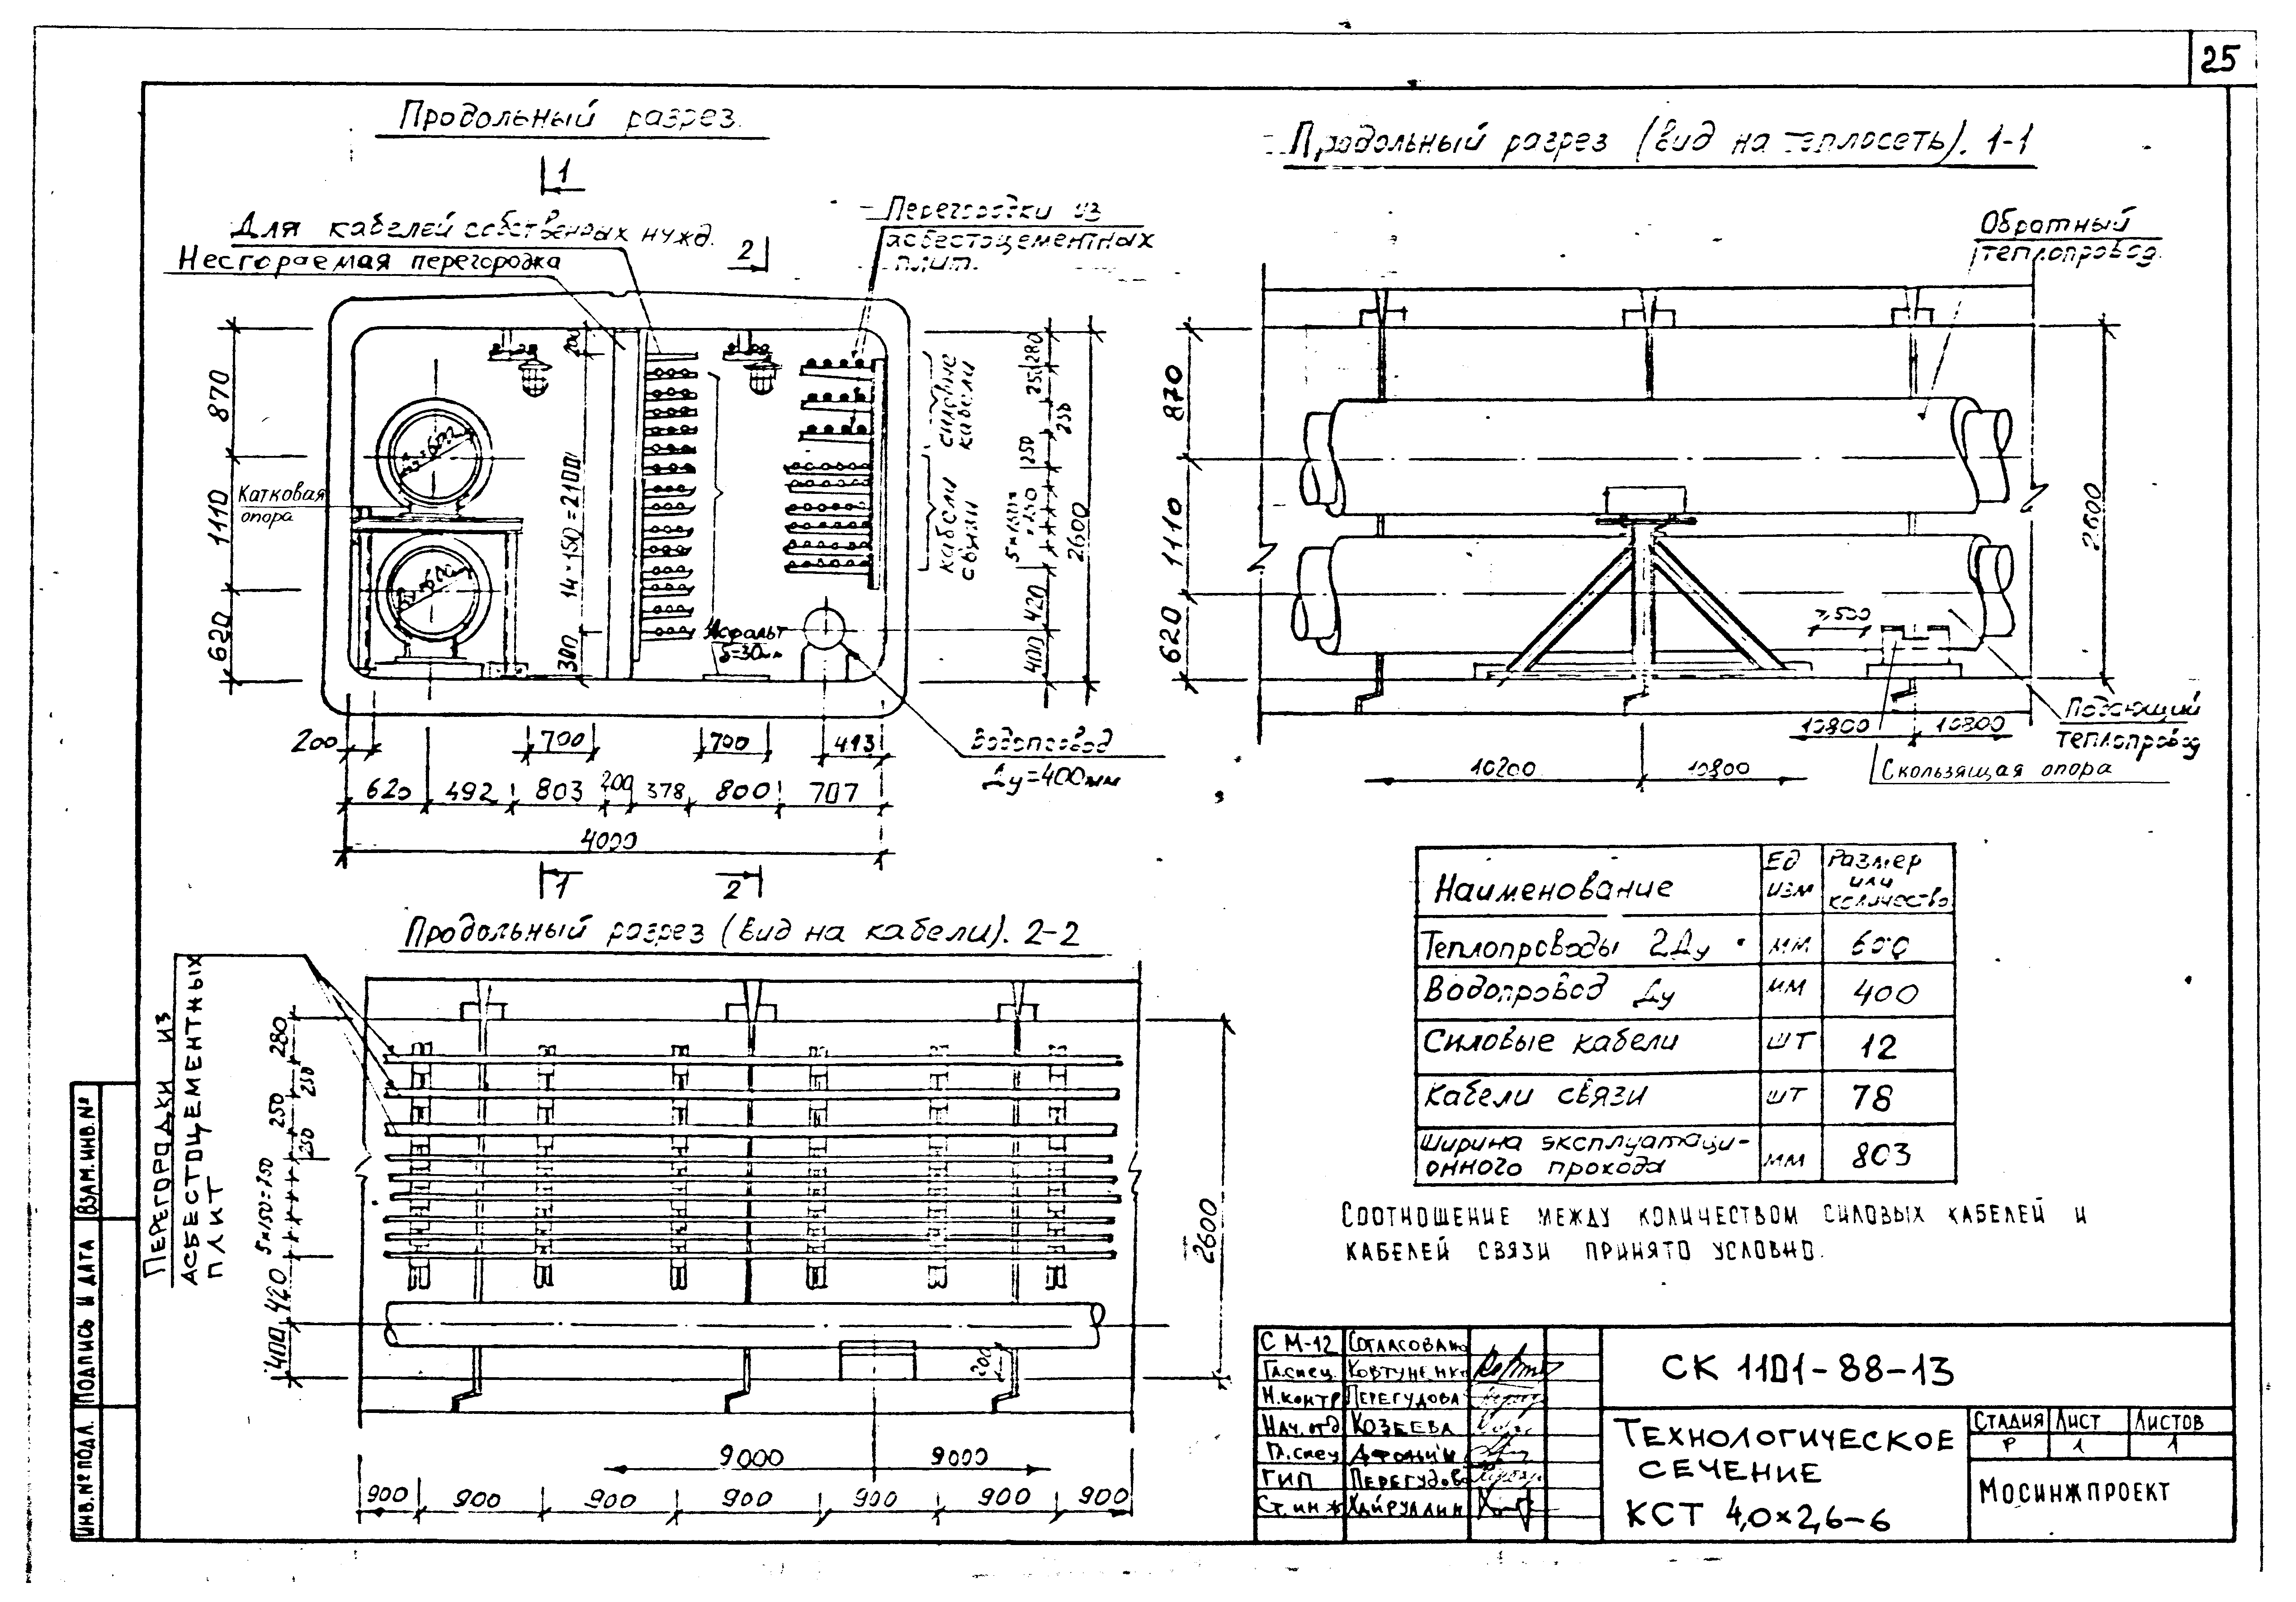 25
Продольный разрез.
1
Для кабелей собственных нужд.
Несгораемая перегородка
2
Перегородки из
асбестоцементных
плит.
870
1110
620
Катковая
опора
200
14×150=2100
300
Асфальт
δ=30мм
силовые
кабели
кабели
связи
280
250
250
250
420
400
2600
200
700
700
413
Водопровод
Ду=400мм
620
492
803
200
378
800
707
4000
1
2
Продольный разрез (вид на теплосеть). 1-1
Обратный
теплопровод.
870
1110
620
2600
10800
10800
Подающий
теплопровод
Скользящая опора
10200
10800
Продольный разрез (вид на кабели). 2-2
Перегородки из
асбестоцементных
плит
280
250
250
250
5×150=750
420
400
2600
200
9000
9000
900
900
900
900
900
900
900
Наименование
Ед
изм
Размер
или
количество
Теплопроводы 2Ду
мм
600
Водопровод Ду
мм
400
Силовые кабели
шт
12
Кабели связи
шт
78
Ширина эксплуатаци-
онного прохода
мм
803
Соотношение между количеством силовых кабелей и
кабелей связи принято условно.
СМ-12 Согласовано
Гл.спец. Ковтуненко
Н.контр Перегудова
Нач.отд Козеева
Гл.спец Афонин
ГИП Перегудова
Ст.инж Хайруллин
СК 1101-88-13
Технологическое
сечение
КСТ 4,0×2,6-6
Стадия Лист Листов
Р 1 1
Мосинжпроект
Взам.инв.№
Подпись и дата
Инв.№ подл.